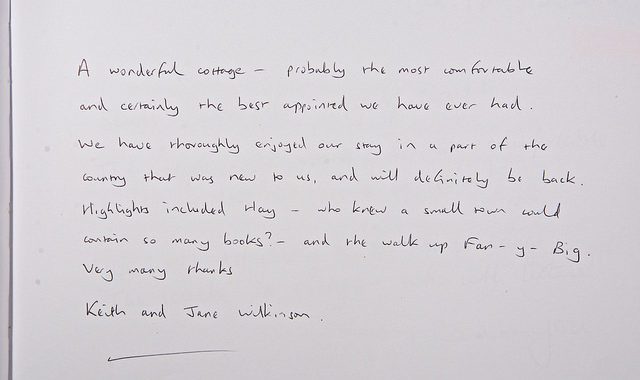 A wonderful cottage – probably the most comfortable
and certainly the best appointed we have ever had.
We have thoroughly enjoyed our stay in a part of the
country that was new to us, and will definitely be back.
Highlights included Hay – who knew a small town could
contain so many books? – and the walk up Fan-y-Big.
Very many thanks
Keith and Jane Wilkinson.